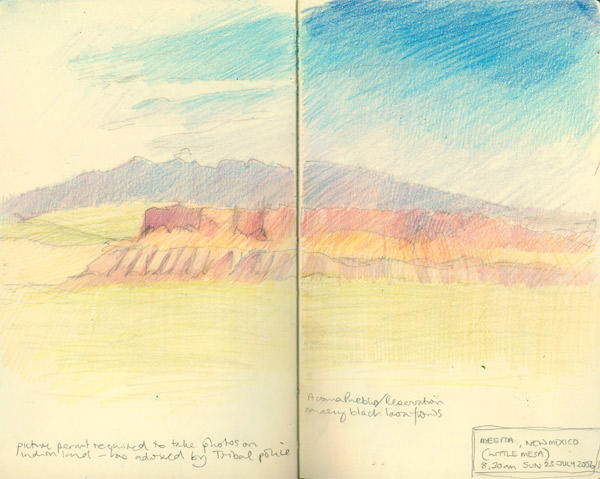 picture permit required to take photos on
Indian land – was advised by Tribal police
Acoma Pueblo/Reservation
black lava flows
MESITA, NEW MEXICO
(LITTLE MESA)
8.20am SUN 23 JULY 2006